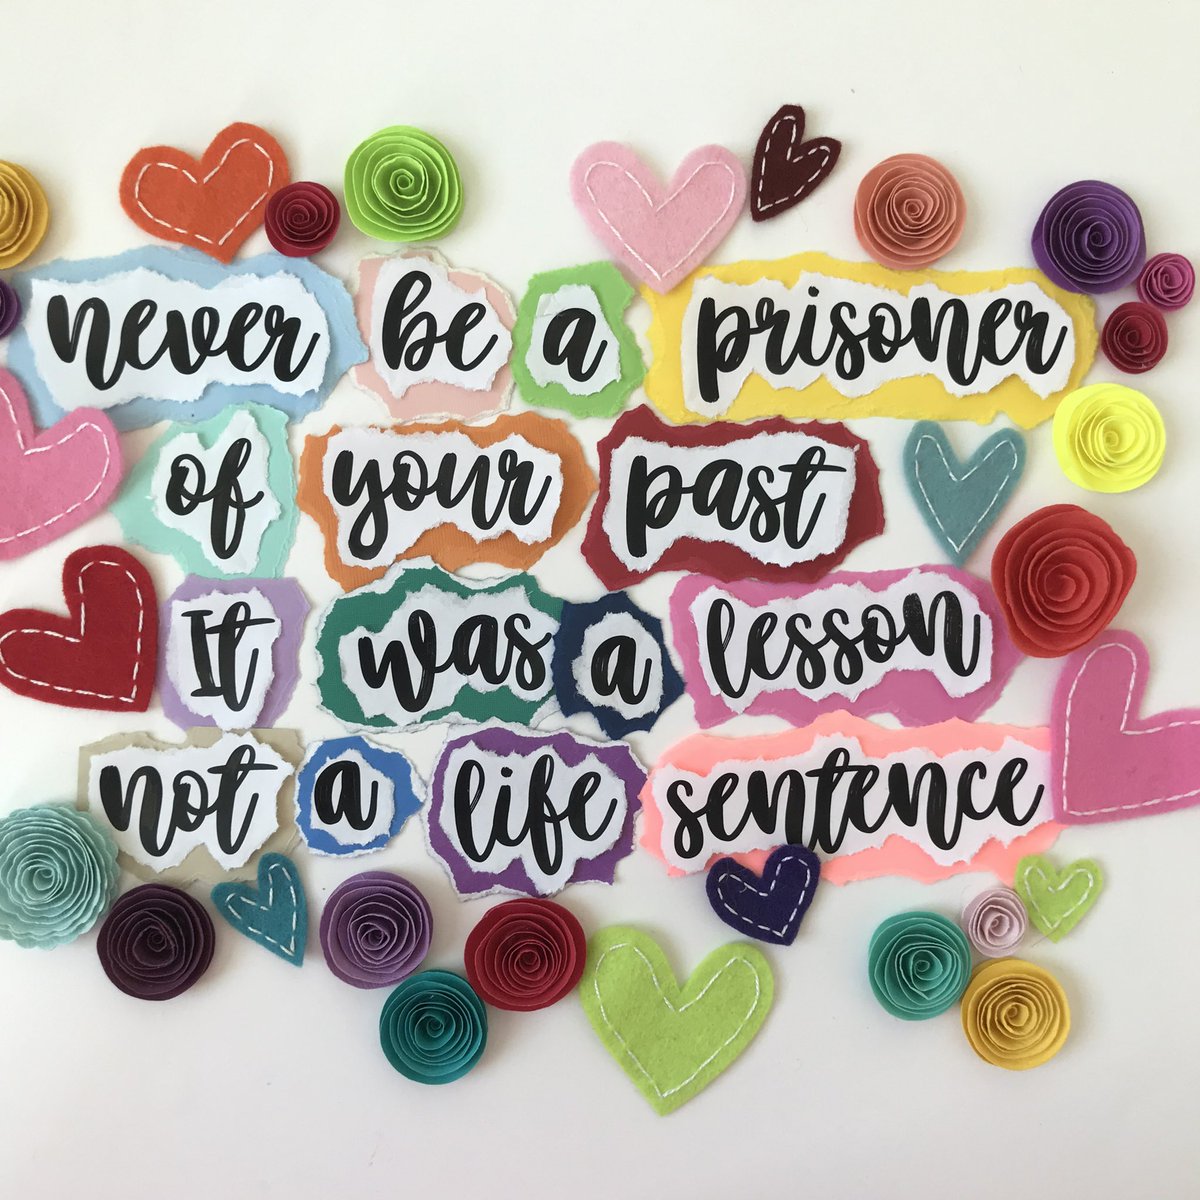 never be a prisoner
of your past
It was a lesson
not a life sentence